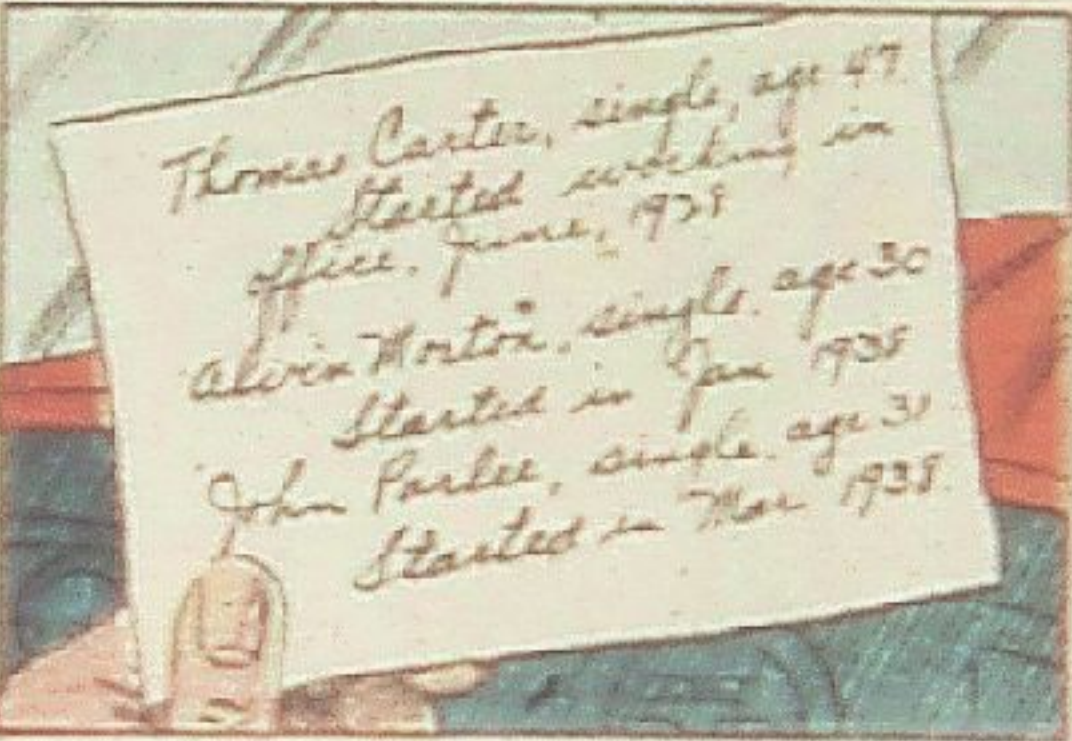 Thomas Carter, single, age 47.
Started working in
office, June, 1928
Alvin Morton, single. age 30
Started in Jan 1938
John Parlee, single. age 31
Started in Mar 1938.